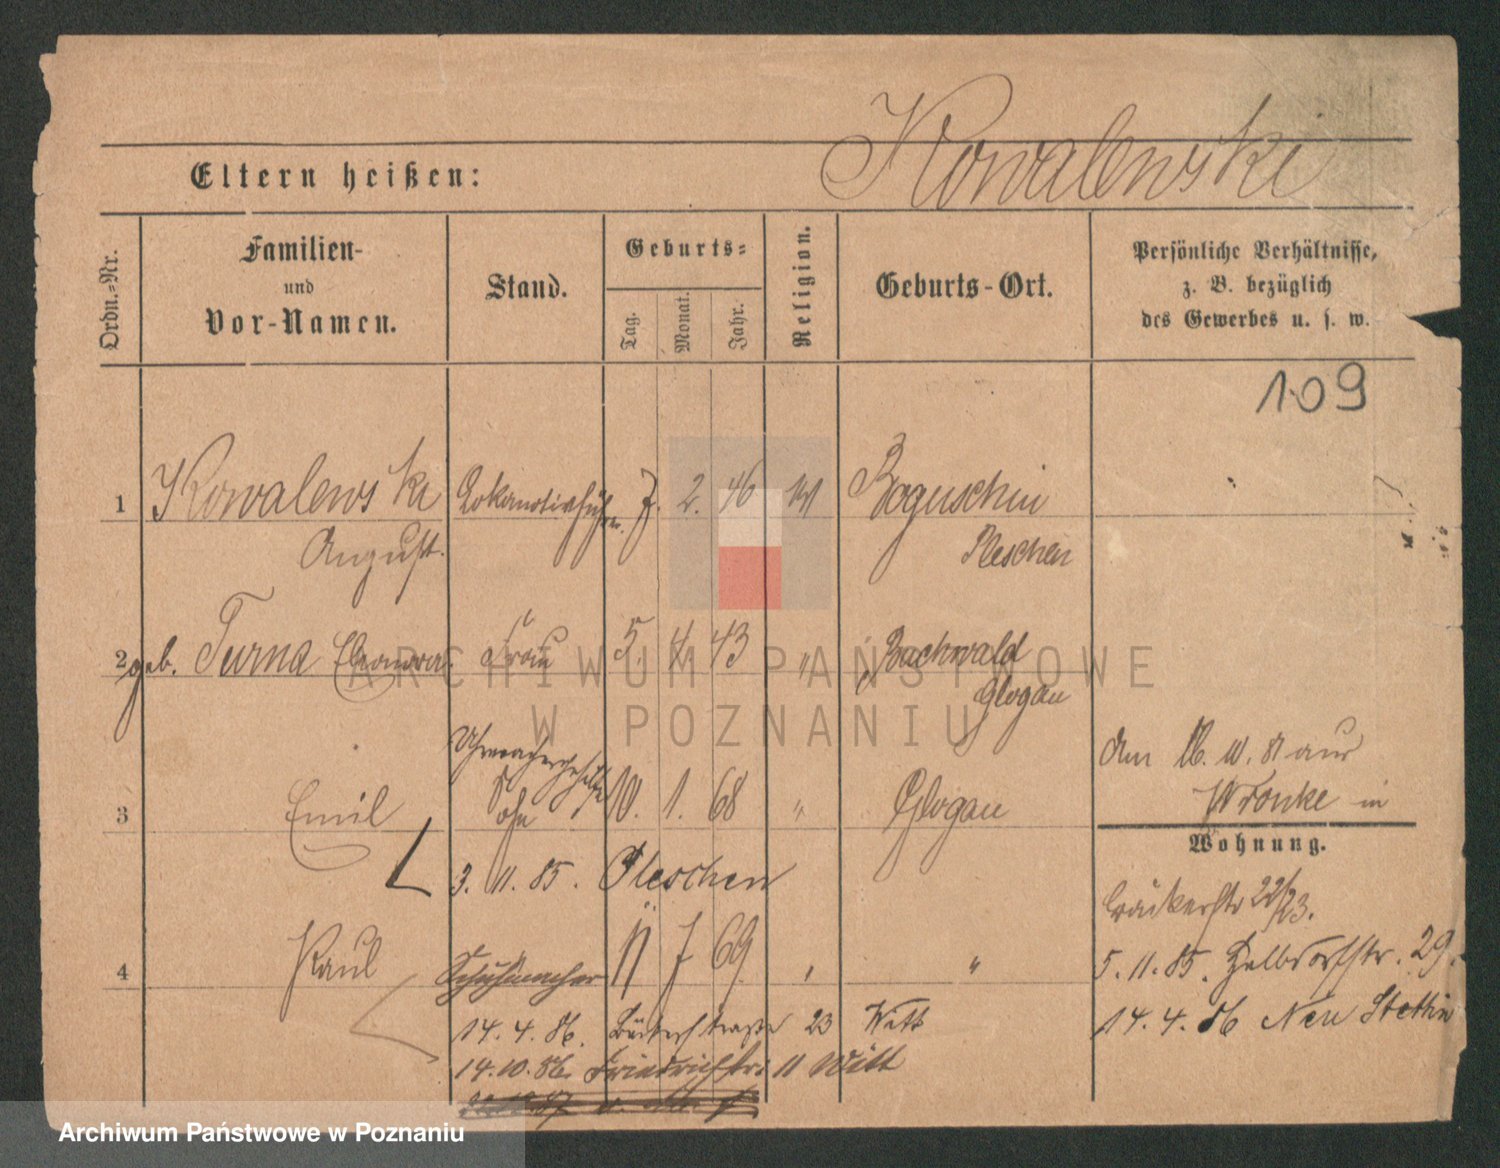 Kowalewski
Eltern heißen:
Ordn.-Nr.
Familien-
und
Vor-Namen.
Stand.
Geburts-
Tag.
Monat.
Jahr.
Religion.
Geburts-Ort.
Persönliche Verhältnisse,
z. B. bezüglich
des Gewerbes u. s. w.
109
1 Kowalewski Lokomotivführer 7. 2. 46 Boguschin
August. Pleschen
2 geb. Turna Eleonora Frau 5. 4. 43 " Buchwald
Glogau
Uhrmachergehilfe
3 Emil Sohn 10. 1. 68 " Glogau
3. 11. 85. Pleschen
4 Paul Schuhmacher 11 7 69 " "
14. 4. 86. 23 Witt
14. 10. 86. Friedrichstr 11 Witt
Am 10. 81 aus
Wronke in
Wohnung.
Bäckerstr 22/23.
5. 11. 85. Halbdorfstr. 29.
14. 4. 86 Neu Stettin
ARCHIWUM PAŃSTWOWE
W POZNANIU
Archiwum Państwowe w Poznaniu